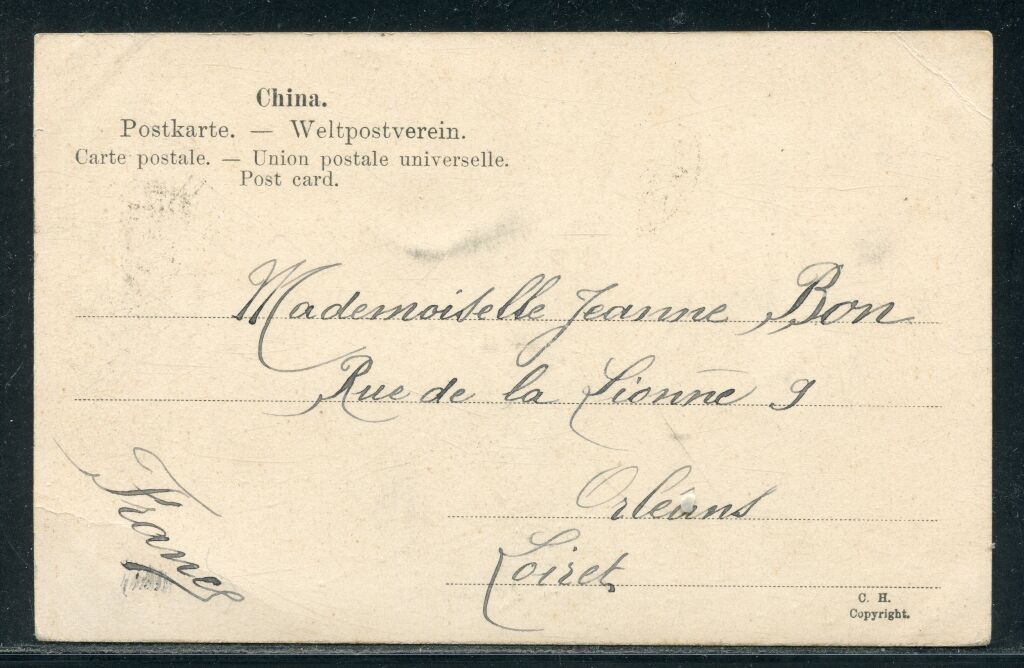 China.
Postkarte. — Weltpostverein.
Carte postale. — Union postale universelle.
Post card.
Mademoiselle Jeanne Bon
Rue de la Lionne 9
Orléans
Loiret
France
C. H.
Copyright.